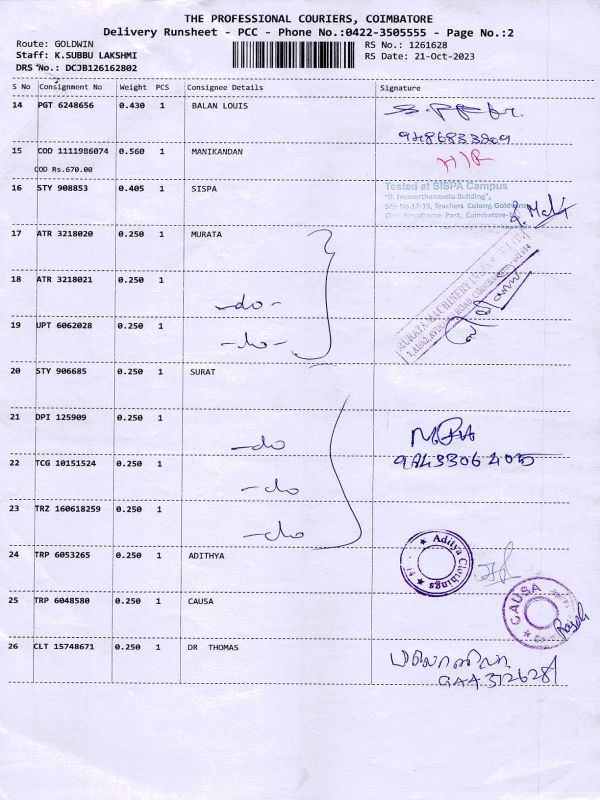 THE PROFESSIONAL COURIERS, COIMBATORE
Delivery Runsheet - PCC - Phone No.:0422-3505555 - Page No.:2
Route: GOLDWIN
Staff: K.SUBBU LAKSHMI
DRS No.: DCJB126162802
RS No.: 1261628
RS Date: 21-Oct-2023
S No Consignment No Weight PCS Consignee Details Signature
14 PGT 6248656 0.430 1 BALAN LOUIS
9486833209
15 COD 1111986074 0.560 1 MANIKANDAN
COD Rs.670.00
16 STY 908853 0.405 1 SISPA
Tested at SISPA Campus
"D. Jayavarthanavelu Building",
Site No.17-19, Teachers Colony, Goldwins
Civil Aerodrome Post, Coimbatore-
17 ATR 3218020 0.250 1 MURATA
18 ATR 3218021 0.250 1
-do-
19 UPT 6062028 0.250 1
-do-
MURATA MACHINERY
20 STY 906685 0.250 1 SURAT
21 DPI 125909 0.250 1
-do
22 TCG 10151524 0.250 1
-do
23 TRZ 160618259 0.250 1
-do
24 TRP 6053265 0.250 1 ADITHYA
Aditya Clothings
25 TRP 6048580 0.250 1 CAUSA
CAUSA
26 CLT 15748671 0.250 1 DR THOMAS